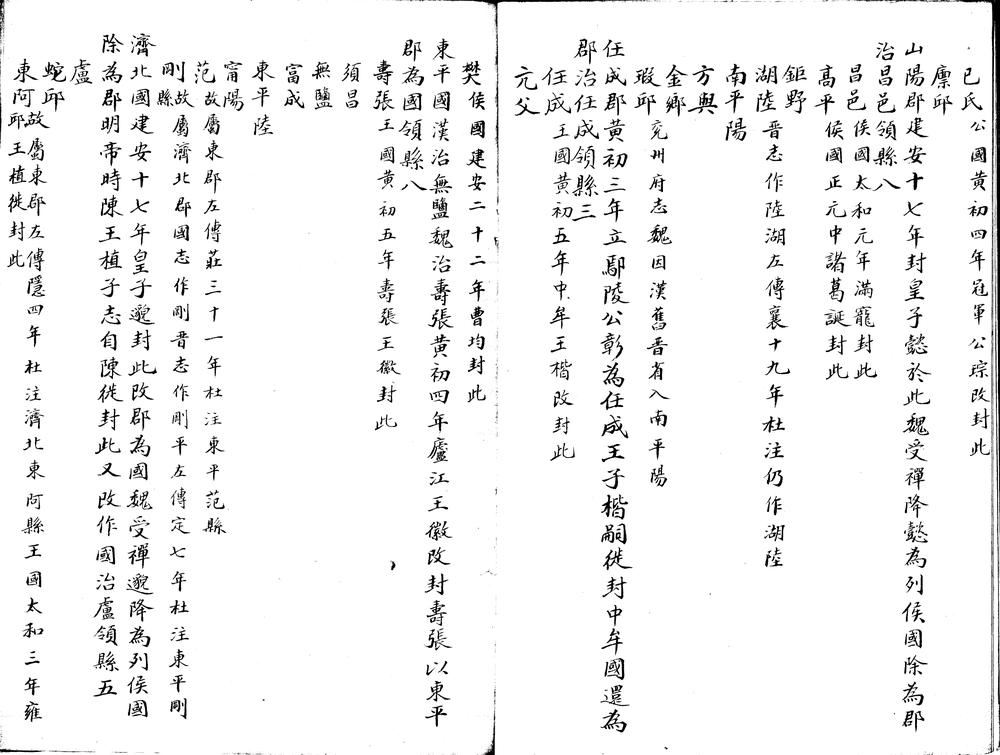 已氏公國黃初四年冠軍公琮改封此
廩邱
山陽郡建安十七年封皇子懿於此魏受禪降懿為列侯國除為郡
治昌邑領縣八
昌邑侯國太和元年滿寵封此
高平侯國正元中諸葛誕封此
鉅野
湖陸晉志作陸湖左傳襄十九年杜注仍作湖陸
南平陽
方與
金鄉
瑕邱兗州府志魏因漢舊晉省入南平陽
任成郡黃初三年立鄢陵公彰為任成王子楷嗣徙封中牟國還為
郡治任成領縣三
任成王國黃初五年中牟王楷改封此
亢父
樊侯國建安二十二年曹均封此
東平國漢治無鹽魏治壽張黃初四年廬江王徽改封壽張以東平
郡為國領縣八
壽張王國黃初五年壽張王徽封此
須昌
無鹽
富成
東平陸
甯陽
范故屬東郡左傳莊三十一年杜注東平范縣
剛故屬濟北郡國志作剛晉志作剛平左傳定七年杜注東平剛
縣
濟北國建安十七年皇子邈封此改郡為國魏受禪邈降為列侯國
除為郡明帝時陳王植子志自陳徙封此又改作國治盧領縣五
盧
蛇邱
東阿故屬東郡左傳隱四年杜注濟北東阿縣王國太和三年雍
邱王植徙封此